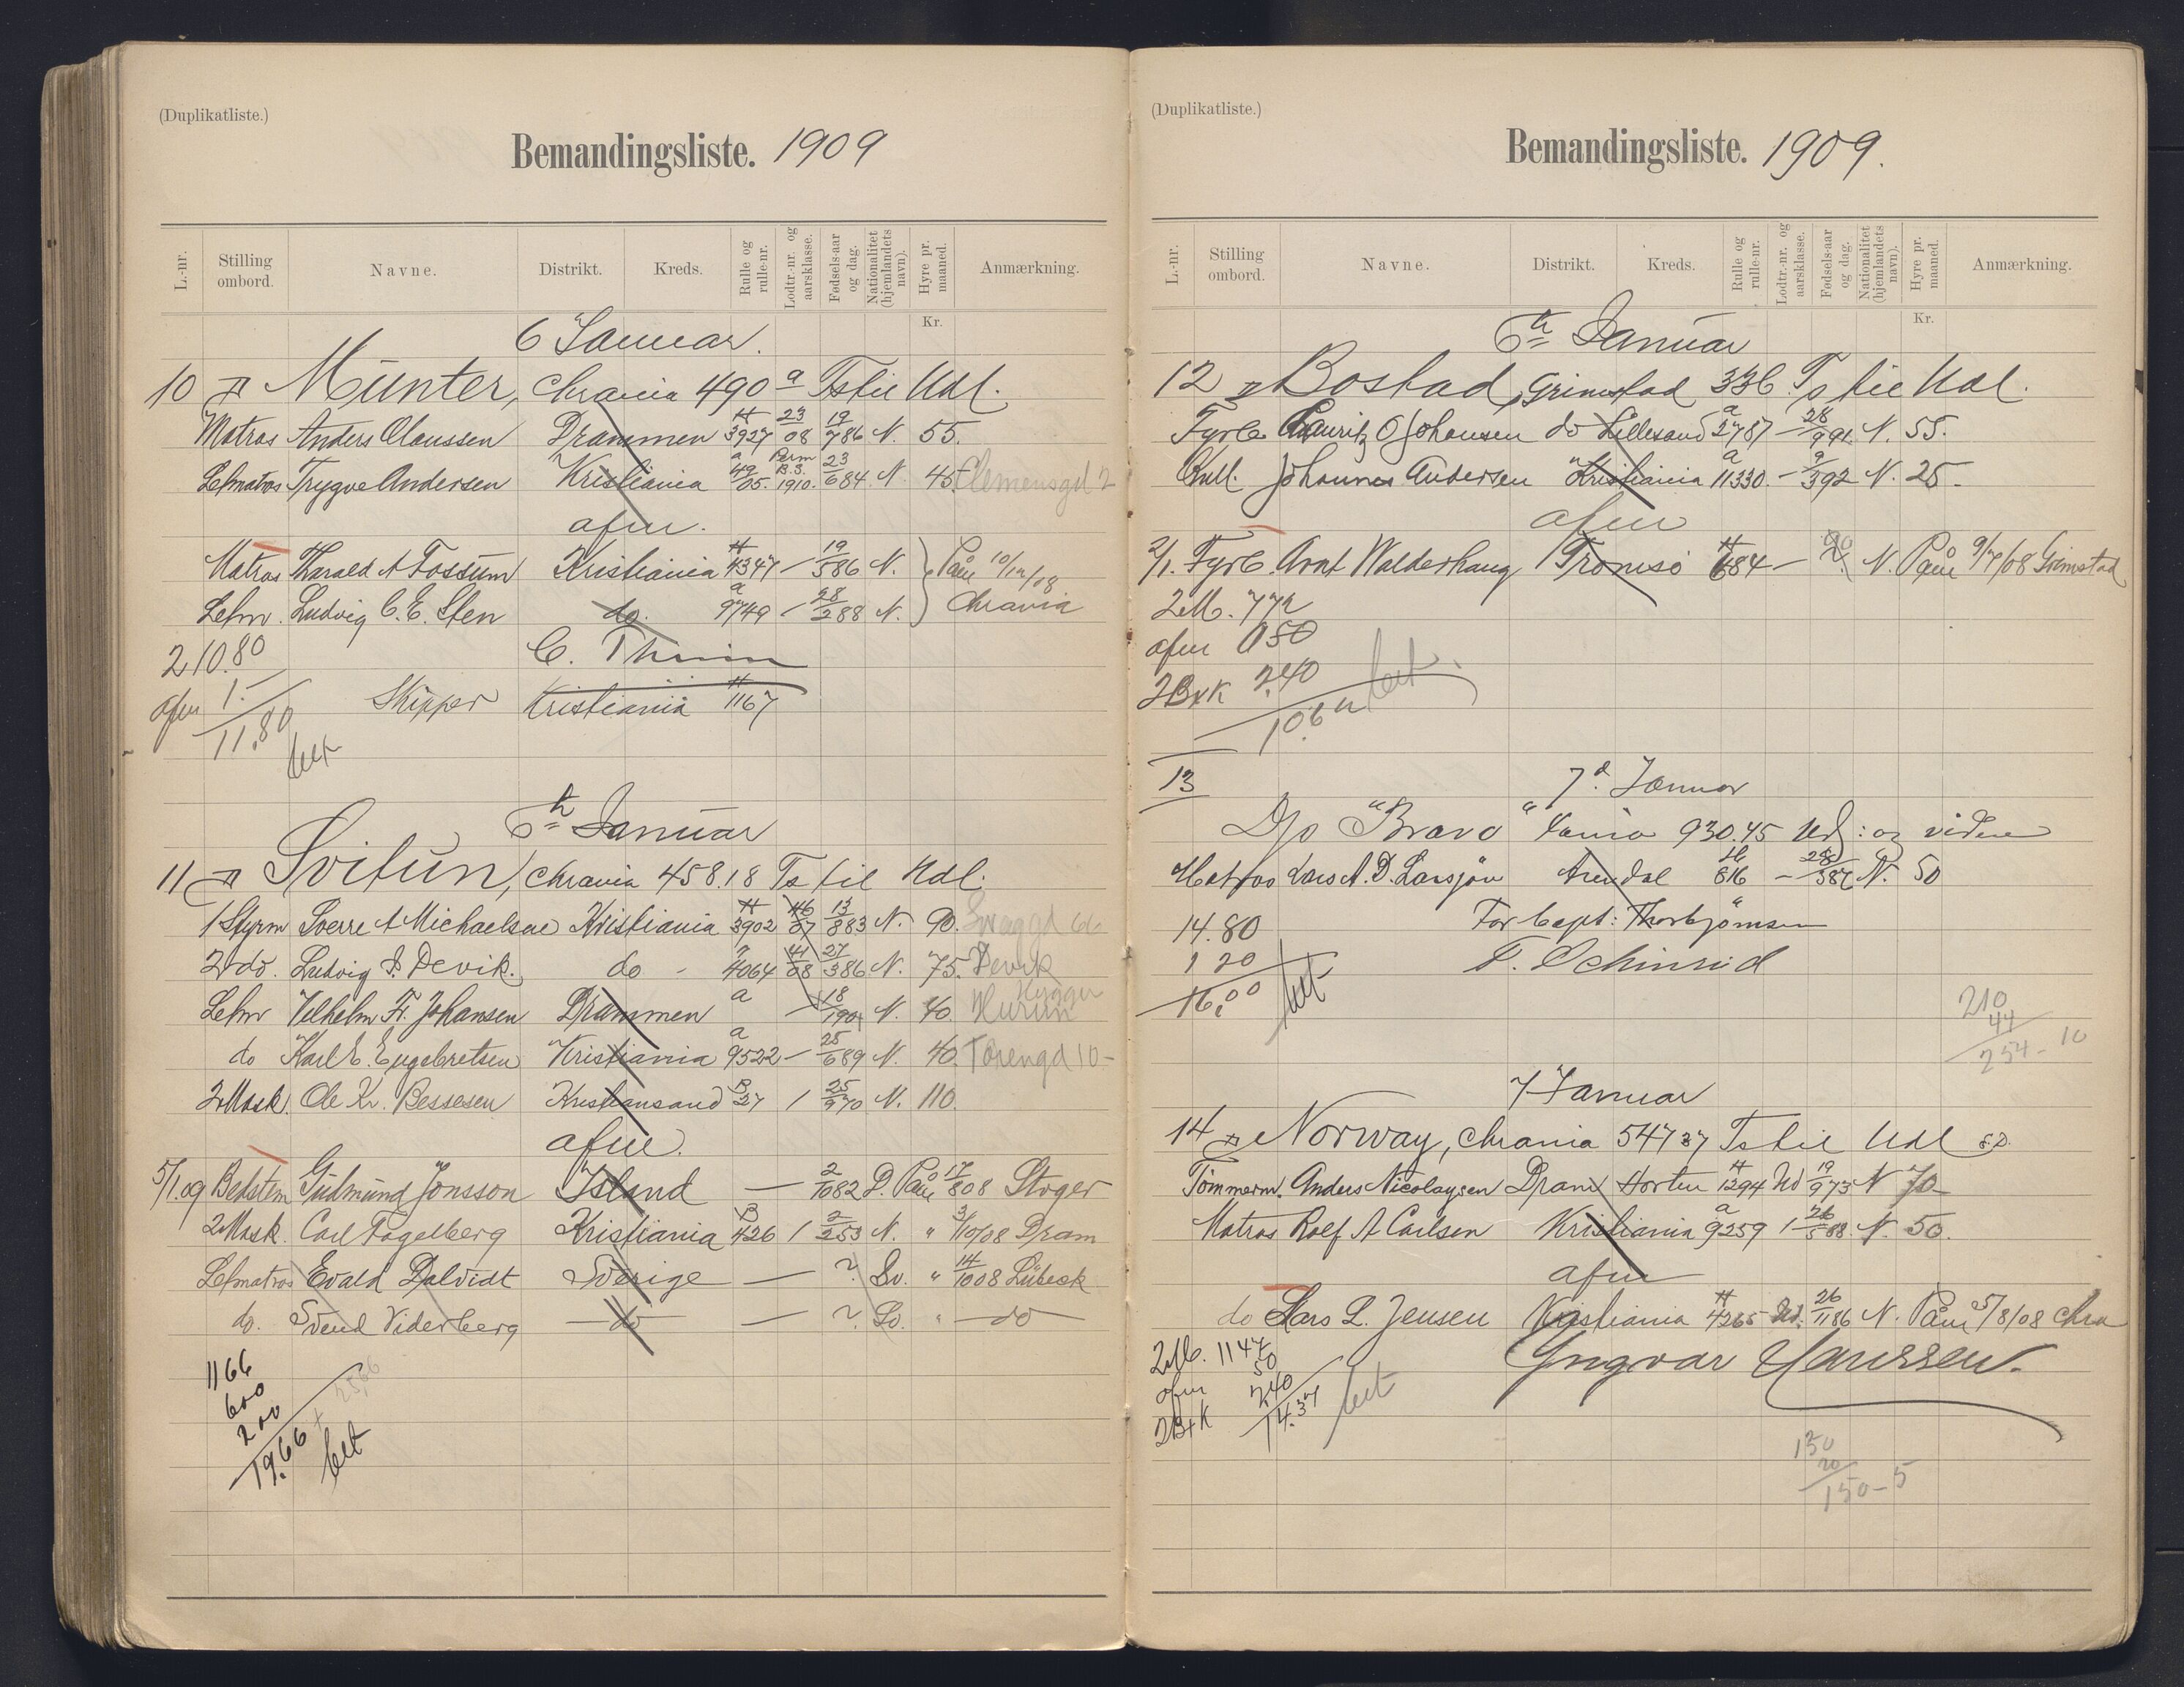 (Duplikatliste.)
Bemandingsliste. 1909
L.-nr. Stilling ombord. Navne. Distrikt. Kreds. Rulle og rulle-nr. Lodtr.-nr. og aarsklasse. Fødsels-aar og dag. Nationalitet (hjemlandets navn). Hyre pr. maaned. Anmærkning.
Kr.
6 Januar.
10 Münter, Chrania 490 Ts til Udl.
Matros Anders Claussen Drammen H 3927 23/08 19/7 86 N. 55.
Letmatros Trygve Andersen Kristiania a 49/05. Perm B.S. 1910. 23/6 84 N. 45. Clemensgd 2
afm.
Matros Tharald A Fossum Kristiania H 4347 – 19/5 86 N. Paam 10/12/08
Letm. Ludvig C. E. Sten do. a 9749 – 28/2 88 N. Chrania
2 10.80
afm 1.-
11.80
bet
Skipper Kristiania H 1167
6te Januar
11 Svitun, Chrania 458.18 Ts til Udl.
1 Styrm Sverre A Michaelsen Kristiania H 3902 46/07 13/8 83 N. 90.
2 do. Ludvig S. Devik. do - a 4064 41/08 27/3 86 N. 75. Devik
Letm Vilhelm Fr. Johansen Drammen a – 18/1 90 N. 40. Hurum
do Karl E. Engebretsen Kristiania a 9522 – 25/6 89 N. 40. Torengd 10-
2 Mask. Ole Kr. Bessesen Kristiansand B 27 1 25/9 70 N. 110.
afm.
5/1 09 Bedstem Gudmund Jonsson Island — 2/10 82 D. Paam 17/8 08
2 Mask. Carl Fagelberg Kristiania B 426 1 2/2 53 N. " 3/10/08 Dram
Letmatros Evald Dalvidt Sverige — ? Sv. " 14/10 08 Lübeck
do. Svend Viderberg do — ? Sv. " — do —
1166
600
200
19.66
bet
(Duplikatliste.)
Bemandingsliste. 1909.
L.-nr. Stilling ombord. Navne. Distrikt. Kreds. Rulle og rulle-nr. Lodtr.-nr. og aarsklasse. Fødsels-aar og dag. Nationalitet (hjemlandets navn). Hyre pr. maaned. Anmærkning.
Kr.
6te Januar
12 Bostad, Grimstad 336 Ts til Udl.
Fyrb. Lauritz O Johansen do Lillesand a 2787 – 28/9 91. N. 55.
Kull. Johannes Andersen Kristiania a 11330. – 9/3 92 N. 25 –
afm
2/1. Fyrb. Arnt Walderhaug Tromsö H 684 – N. Paam 9/7/08 Grimstad
2 M. 772
afm 050
2 Bxk 240
bet
13
7d. Januar
D/s "Bravo" Xania 930.45 Udl: og videre
Matros Lars A. D. Larsjön Arendal H 816 – 28/5 82 N. 50
For Capt: Thorbjørnsen
14.80
1 20
16.00
bet
210
44
254 – 10
7 Januar
14 Norway, Chrania 547 37 Ts til Udl s.D.
Tømmerm. Anders Nicolaysen Dram Horten H 1294 Ud 19/9 73 N 70 –
Matros Rolf A Carlsen Kristiania a 9259 1 26/5 88. N. 50.
afm
do Lars L. Jensen Kristiania H 4265 Ud. 26/11 86 N. Paam 5/8/08 Chra
Yngvar Hanssen.
2 M. 1147
afm 50
2 Bxk 240
14.37
bet
130
20
150 – 5